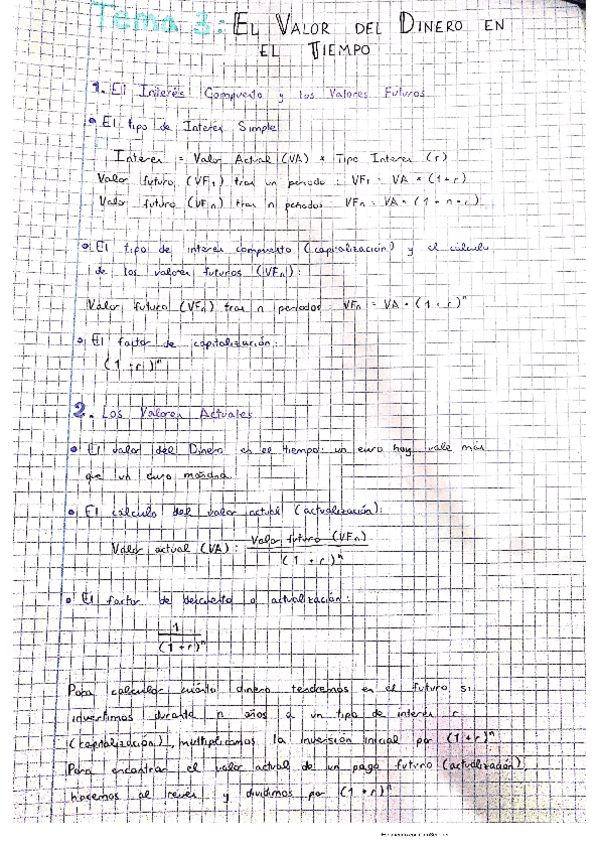 Tema 3: El Valor del Dinero en
el Tiempo
1. El Interés Compuesto y los Valores Futuros
• El tipo de Interés Simple
Interes = Valor Actual (VA) * Tipo Interes (r)
Valor futuro (VF1) tras un periodo : VF1 = VA * (1+r)
Valor futuro (VFn) tras n periodos VFn = VA * (1 + n * r)
• El tipo de interes compuesto (capitalización) y el cálculo
de los valores futuros (VFn):
Valor futuro (VFn) tras n periodos VFn = VA * (1 + r)ⁿ
• El factor de capitalización:
(1 + r)ⁿ
2. Los Valores Actuales
• El valor del Dinero en el tiempo: un euro hoy vale más
que un euro mañana
• El cálculo del valor actual (actualización):
Valor actual (VA): Valor futuro (VFn)
(1 + r)ⁿ
• El factor de descuento o actualización:
1
(1 + r)ⁿ
Para calcular cuánto dinero tendremos en el futuro si
invertimos durante n años a un tipo de interés r
(capitalización), multiplicamos la inversión inicial por (1+r)ⁿ
Para encontrar el valor actual de un pago futuro (actualización),
hacemos al revés y dividimos por (1+r)ⁿ